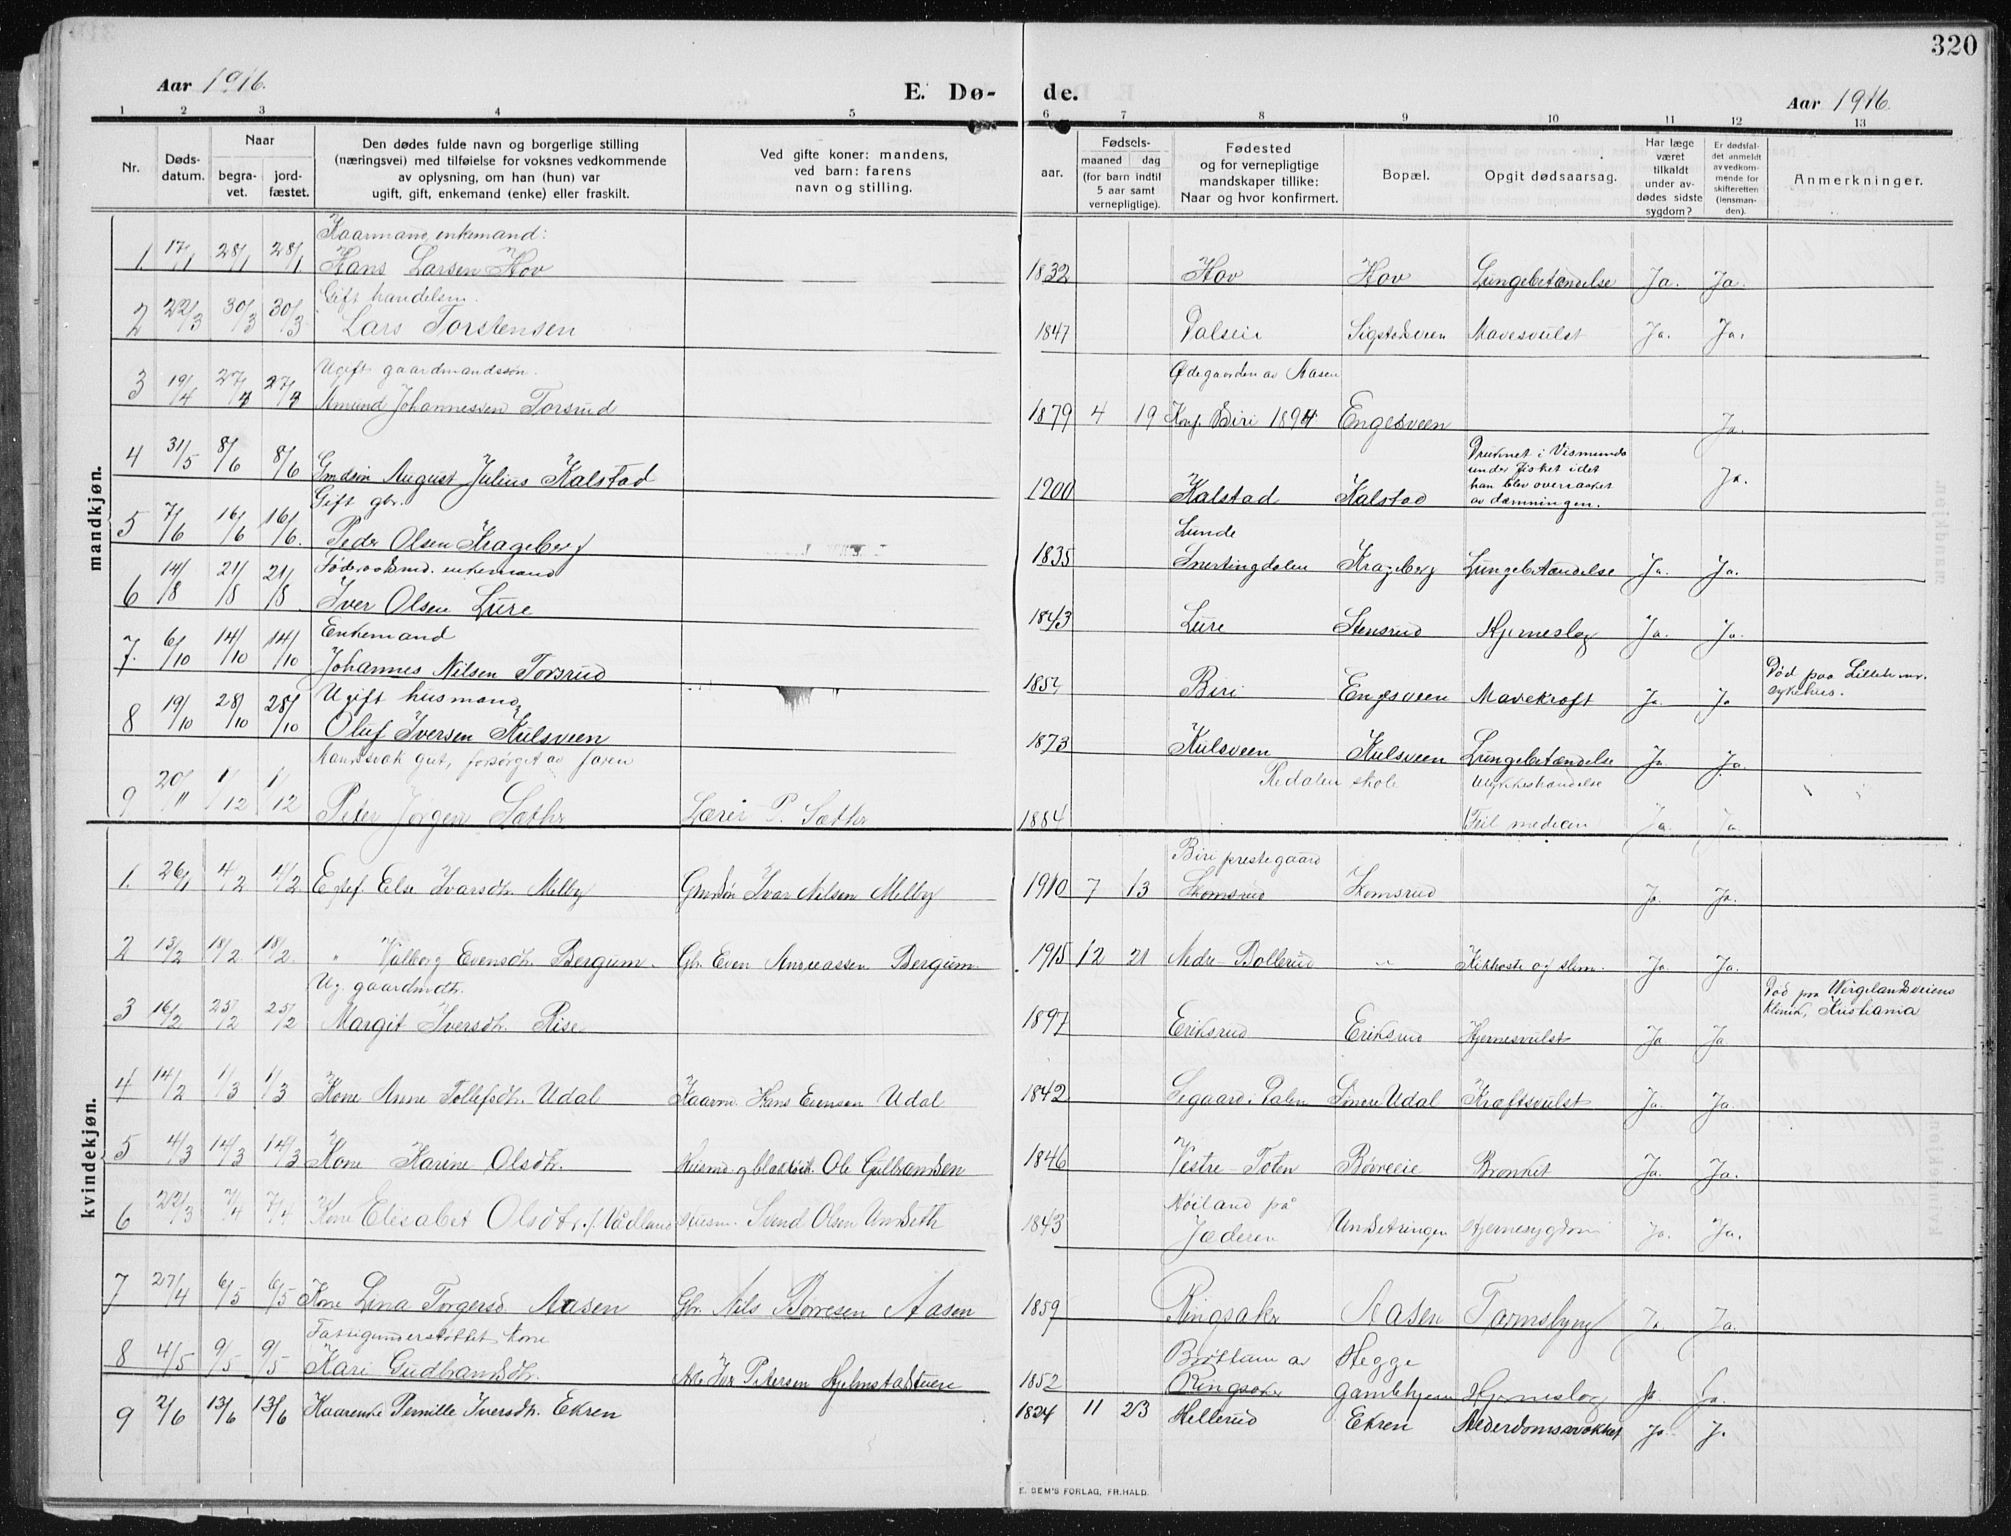 320
Aar 1916.
E. Dø-
de.
Aar 1916.
1 2 3 4 5 6 7 8 9 10 11 12 13
Nr.
Døds-
datum.
Naar
begra-
vet.
jord-
fæstet.
Den dødes fulde navn og borgerlige stilling
(næringsvei) med tilføielse for voksnes vedkommende
av oplysning, om han (hun) var
ugift, gift, enkemand (enke) eller fraskilt.
Ved gifte koner: mandens,
ved barn: farens
navn og stilling.
Fødsels-
aar.
maaned
dag
(for barn indtil
5 aar samt
vernepligtige).
Fødested
og for vernepligtige
mandskaper tillike:
Naar og hvor konfirmert.
Bopæl.
Opgit dødsaarsag.
Har læge
været
tilkaldt
under av-
dødes sidste
sygdom?
Er dødsfal-
det anmeldt
av vedkom-
mende for
skifteretten
(lensman-
den).
Anmerkninger.
mandkjøn.
Kaarmand, enkemand:
1. 17/1 28/1 28/1 Hans Larsen Hov 1832 Hov Hov Lungebetændelse Ja. Ja.
Gift handelsm.
2 22/3 30/3 30/3 Lars Torstensen 1847 Dalseie Sigstadsveen Mavesvulst Ja. Ja.
Ugift gaardmandssøn. Ødegaarden av Aasen
3 19/4 27/4 27/4 Amund Johannessen Torsrud 1879 4 19 Konf. Biri 1894 Engesveen Ja.
4 31/5 8/6 8/6 Gmdsøn August Julius Kalstad 1900 Kalstad Kalstad Druknet i Vismunda
under fisket idet
han blev overrasket
av dæmningen. Ja.
Gift gbr. Lunde
5 7/6 16/6 16/6. Peder Olsen Krageberg 1835 Snertingdalen Krageberg Lungebetændelse Ja. Ja.
Føderaadsmd. enkemand
6 14/8 21/8 21/8 Iver Olsen Lure 1843 Lure Stensrud Hjerneslag Ja. Ja.
Enkemand
7. 6/10 14/10 14/10 Johannes Nilsen Torsrud 1857 Biri Engesveen Mavekræft Ja. Ja Død paa Lilleham.
sykehus.
Ugift husmand
8 19/10 28/10 28/10 Oluf Iversen Kulsveen 1873 Kulsveen Kulsveen Lungebetændelse Ja. Ja.
Aandssvak gut, forsørget av faren Redalen skole Ulykkeshændelse
9 20/11 1/12 1/12 Peter Jørgen Sæthr Lærer P. Sæthr 1884 Feil medicin Ja. Ja
kvindekjøn.
Biri prestegaard
1. 26/1 4/2 4/2 Egtef Else Ivarsdtr. Melby Gmdsøn Ivar Nilsen Melby 1910 7 13 Skomsrud Skomsrud Ja. Ja.
2 13/2 18/2. 18/2. " Valborg Evensdtr. Bergum. Gbr. Even Andreassen Bergum. 1915 12 21 Nedre Bollerud " Kikhoste og slim. Ja. Ja.
Ug. gaardmdtr. Død paa Wergelandsveiens
3 16/2 25/2 25/2 Margit Iversdtr. Rise 1897 Eriksrud Eriksrud Hjernesvulst Ja Ja klinik, Kristiania
4 14/2 1/3 1/3 Kone Anne Tollefsdtr. Udal Kaarm. Hans Evensen Udal 1842 Segaard i Dalen Smere Udal Kræftsvulst Ja. Ja.
5 4/3 14/3 14/3 Kone Karine Olsdtr. Husmd. Ole Gulbrandsen 1846 Vestre Toten Børreeie Bronkit Ja. Ja.
6 22/3 7/4 7/4 Kone Elisabet Olsdtr. f. Vådland Husm. Svend Olsen Undseth 1843 Nøiland på
Jæderen Undsetringen Hjernesygdom Ja. Ja.
7 27/4 6/5 6/5 Kone Lina Torgersd. Aasen Gbr. Nils Børresen Aasen 1859 Ringsaker Aasen Tarmslyng Ja. Ja.
Fattigunderstøttet kone Brøttum av Hegge
8 4/5 9/5 9/5 Kari Gudbrandsdtr. Petersen Hjelmstadstuen 1852 Ringsaker Gamlehjem Hjerneslag Ja Ja.
9 2/6 13/6 13/6 Kaarenke Pernille Iversdtr. Ekren 1824 11 23 Hellerud Ekren Alderdomssvakhet Ja. Ja.
E. SEM'S FORLAG, FR.HALD.